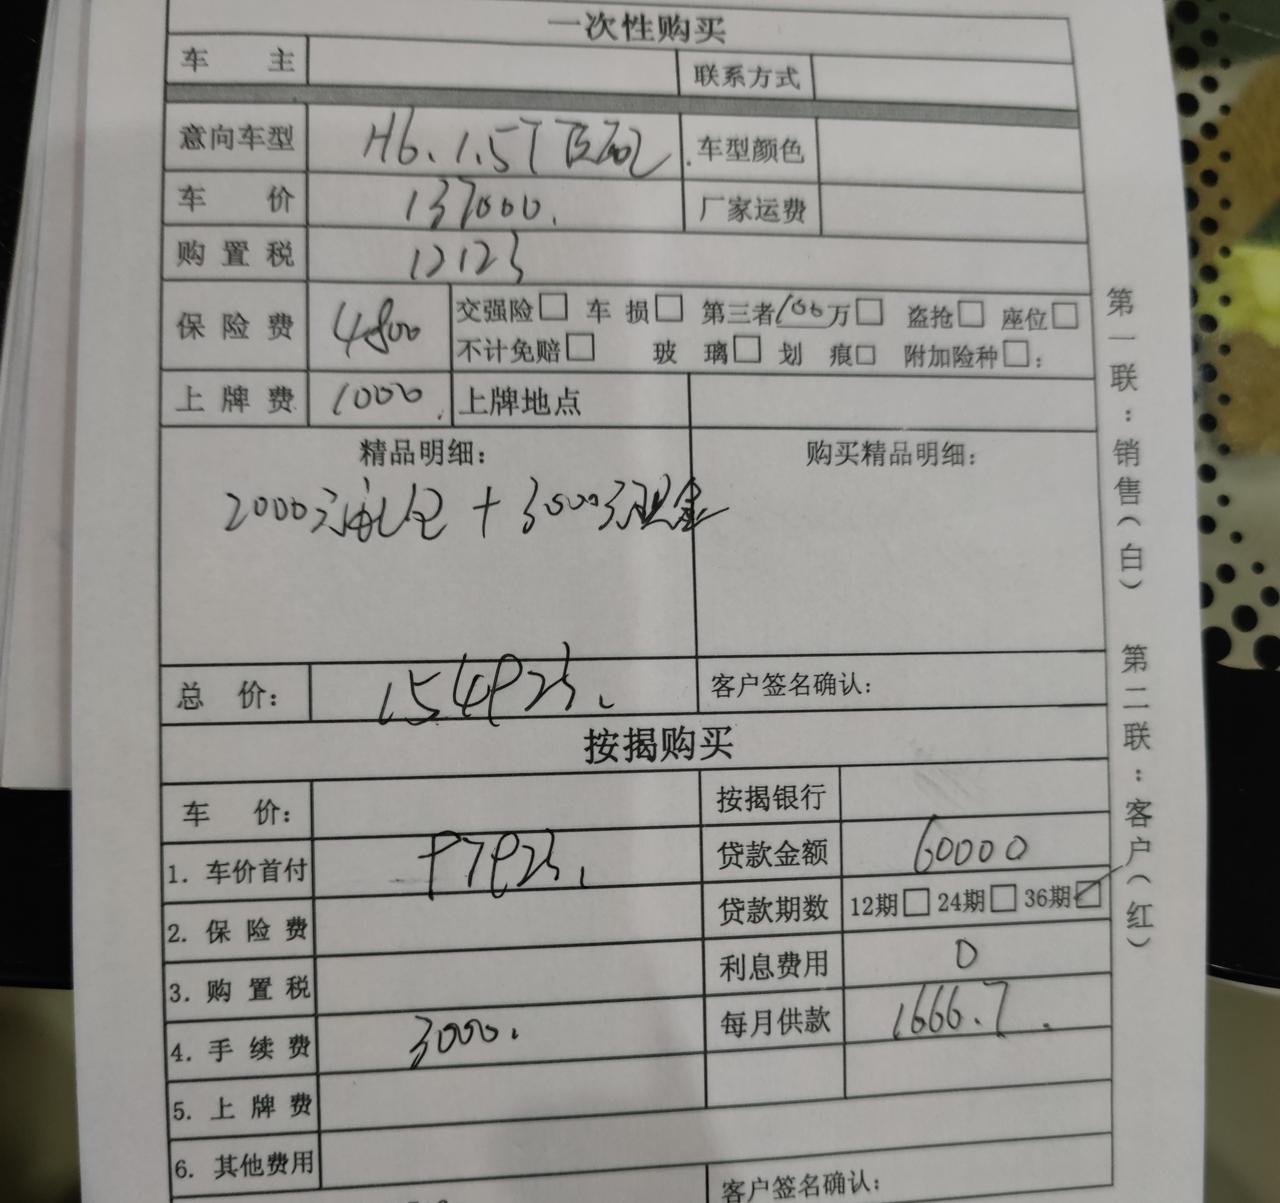 一次性购买
车 主 联系方式
意向车型 H6.1.5T 车型颜色
车 价 137000. 厂家运费
购置税 12123
保险费 4800 交强险□ 车损□ 第三者100万□ 盗抢□ 座位□
不计免赔□ 玻璃□ 划痕□ 附加险种□:
上牌费 1000. 上牌地点
精品明细: 购买精品明细:
2000元礼包+3000元现金
总 价: 154923. 客户签名确认:
按揭购买
车 价: 按揭银行
1. 车价首付 97923. 贷款金额 60000
2. 保险费 贷款期数 12期□ 24期□ 36期☑
3. 购置税 利息费用 0
4. 手续费 3000. 每月供款 1666.7.
5. 上牌费
6. 其他费用
客户签名确认:
第一联:销售(白) 第二联:客户(红)